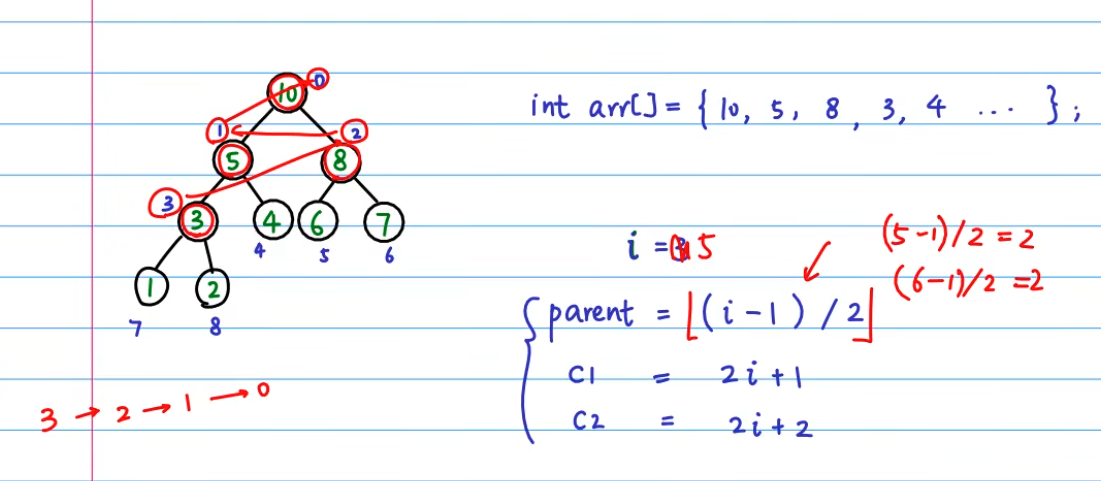 10 0
1 2
5 8
3
3 4 6 7
4 5 6
1 2
7 8
3 → 2 → 1 → 0
int arr[] = { 10, 5, 8, 3, 4 ... };
i = 5
(5-1)/2 = 2
(6-1)/2 = 2
parent = ⌊(i-1)/2⌋
C1 = 2i+1
C2 = 2i+2